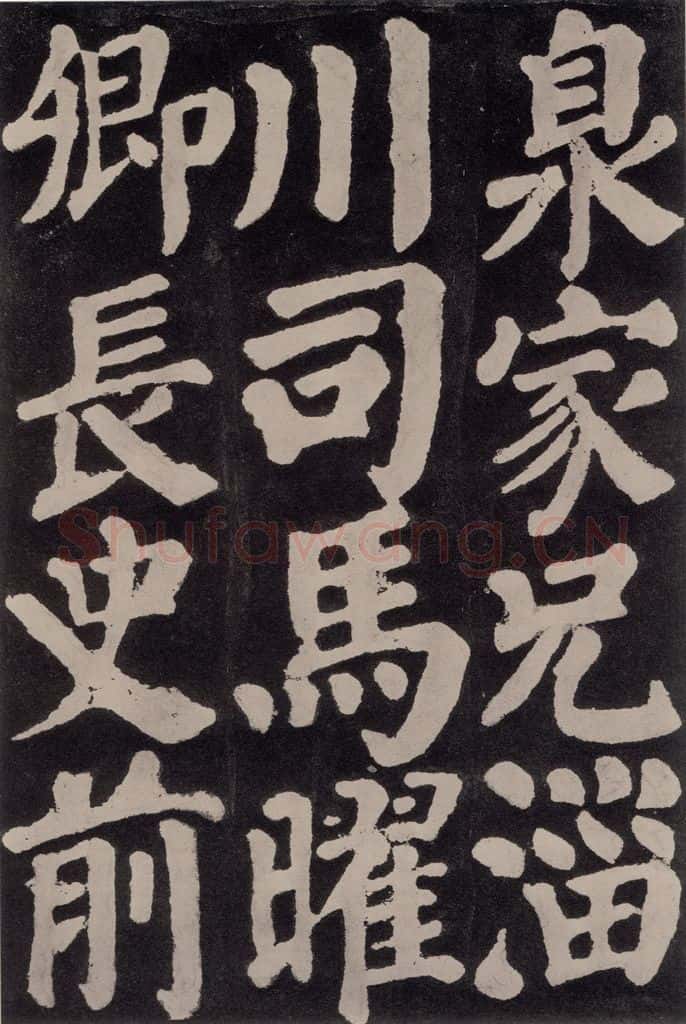 泉家兄淄
川司馬曜
卿長史前
Shufawang.CN